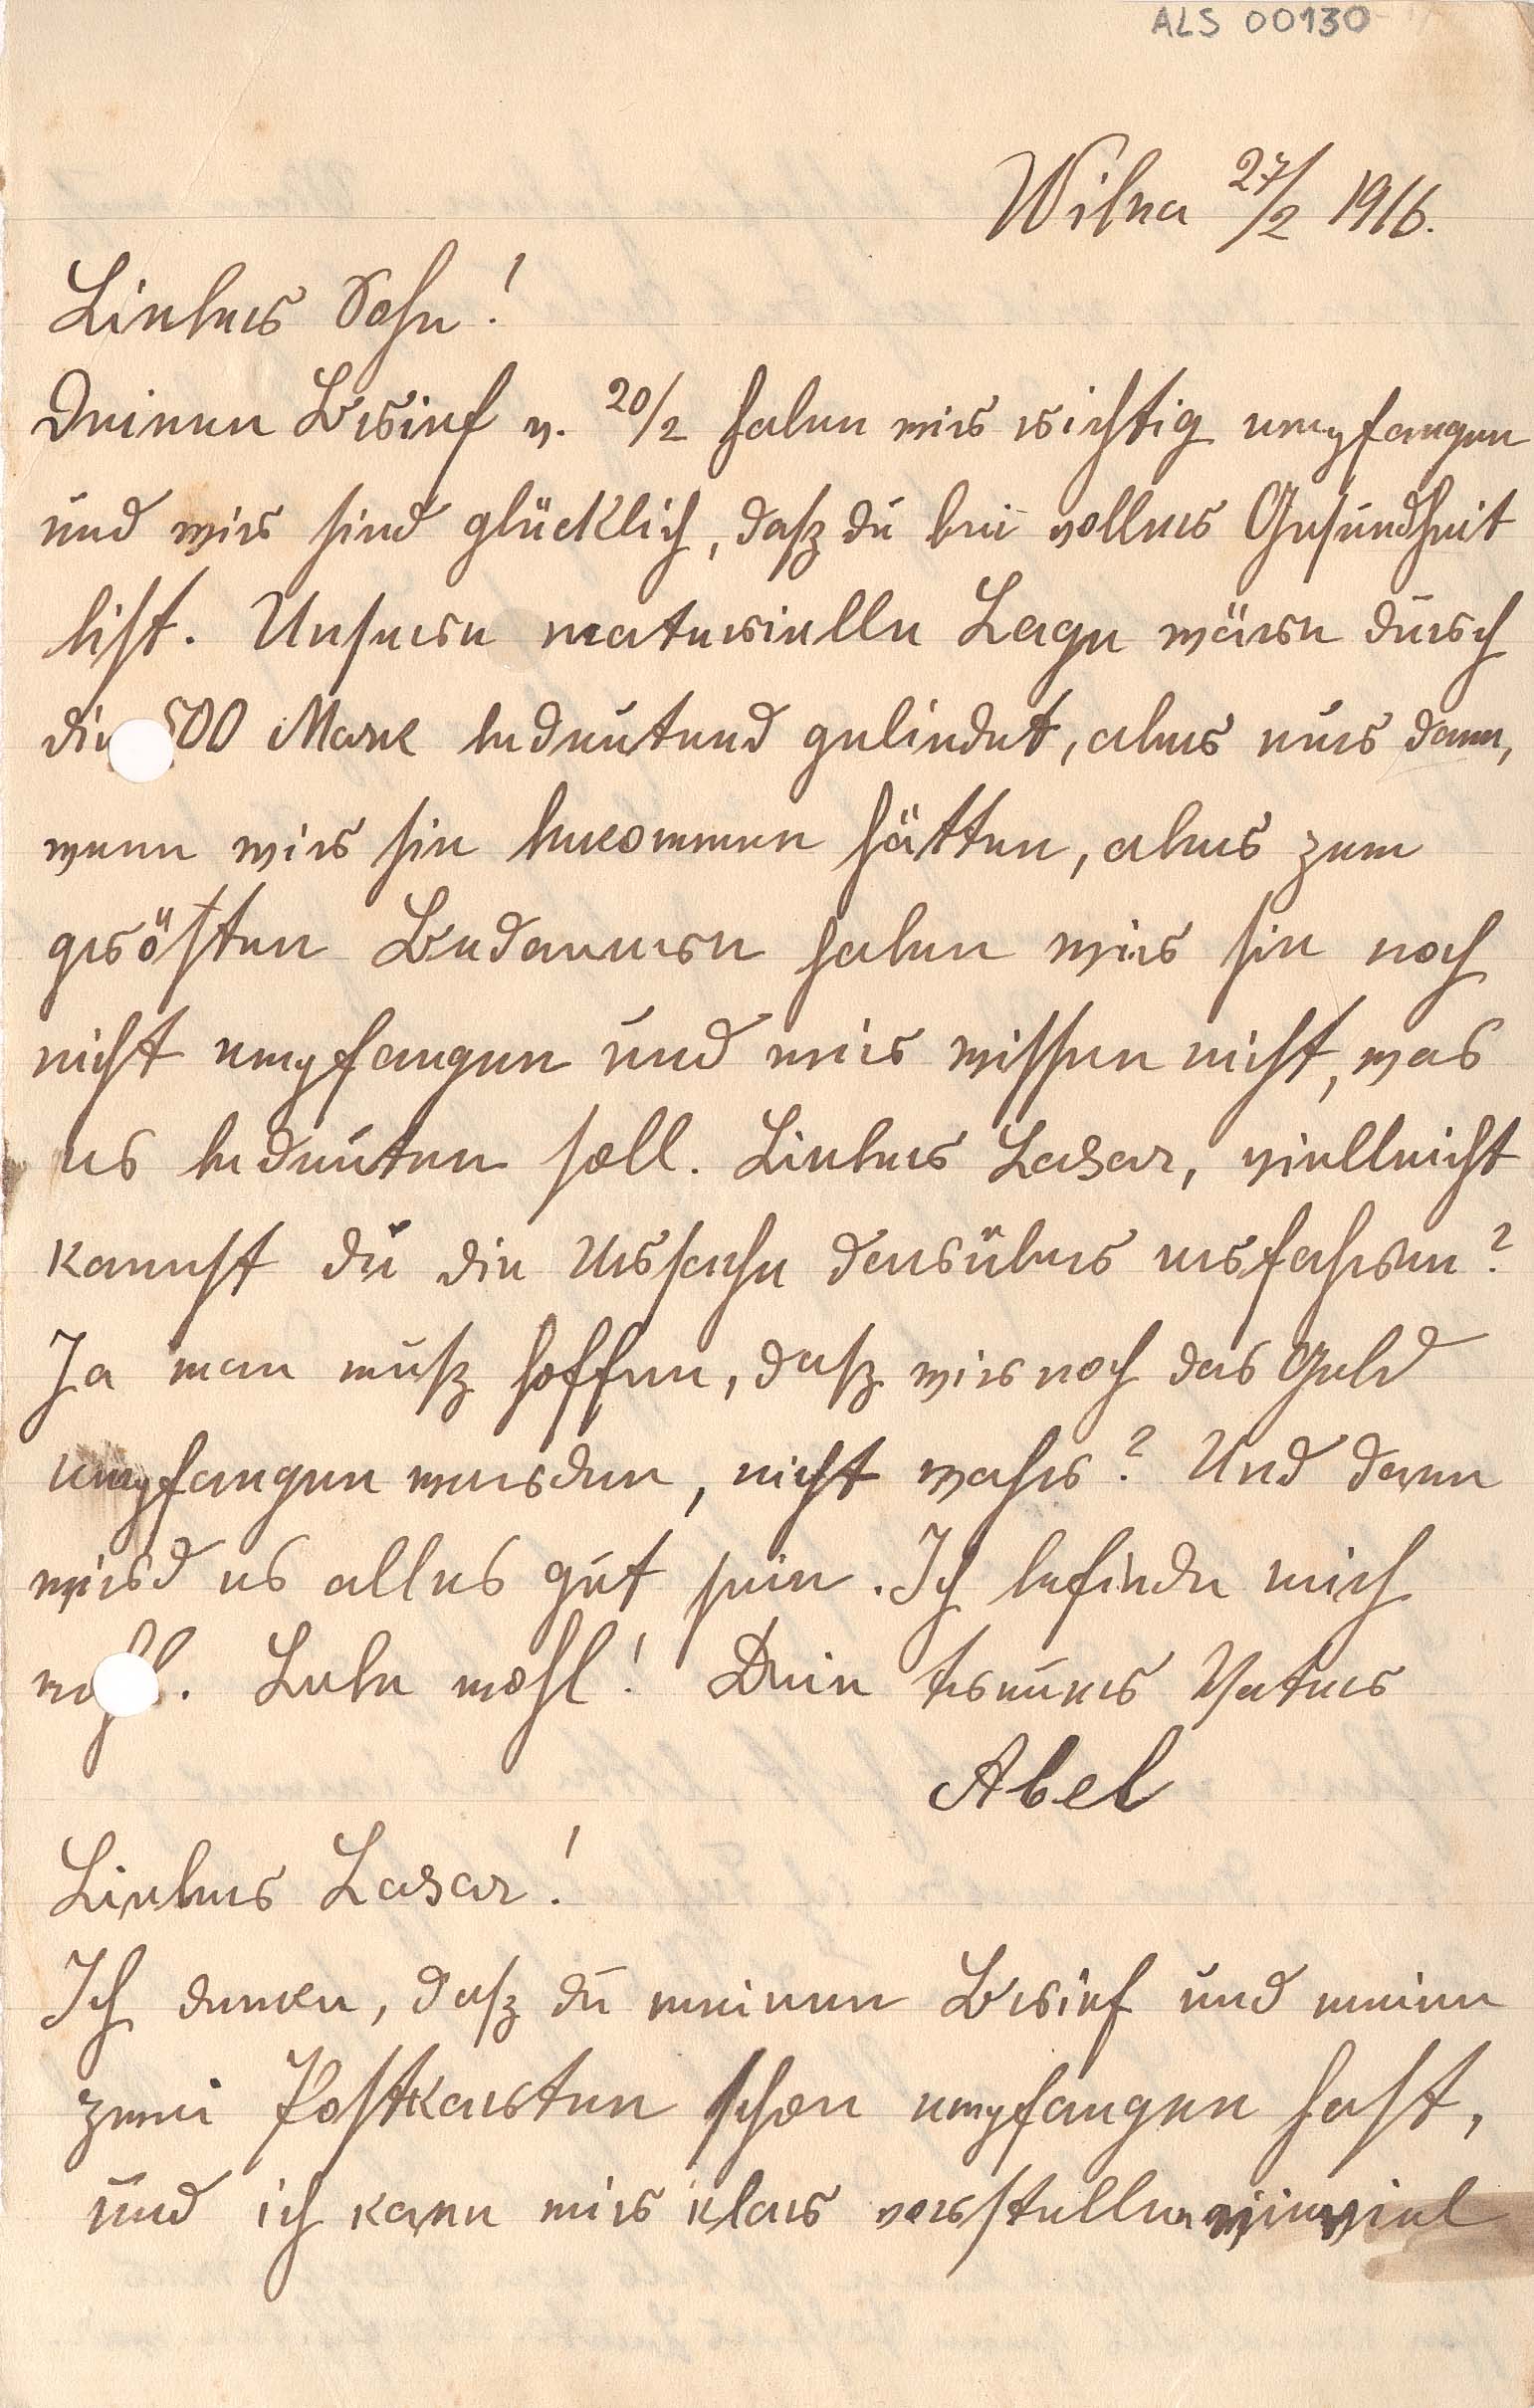 ALS 00130
Wilna 27/2 1916.
Lieber Sohn!
Deinen Brief v. 20/2 haben wir richtig empfangen
und wir sind glücklich, daß du bei voller Gesundheit
bist. Unsere materielle Lage wäre durch
die 500 Mark bedeutend gelindet, aber nur dann,
wenn wir sie bekommen hätten, aber zum
größten Bedauern haben wir sie noch
nicht empfangen und wir wissen nicht, was
es bedeuten soll. Lieber Lasar, vielleicht
kannst du die Ursache darüber erfahren?
Ja man muß hoffen, daß wir noch das Geld
empfangen werden, nicht wahr? Und dann
wird es alles gut sein. Ich befinde mich
wohl. Lebe wohl! Dein treuer Vater
Abel
Lieber Lasar!
Ich denke, daß du meinen Brief und meine
zwei Postkarten schon empfangen hast,
und ich kann mir klar vorstellen wieviel